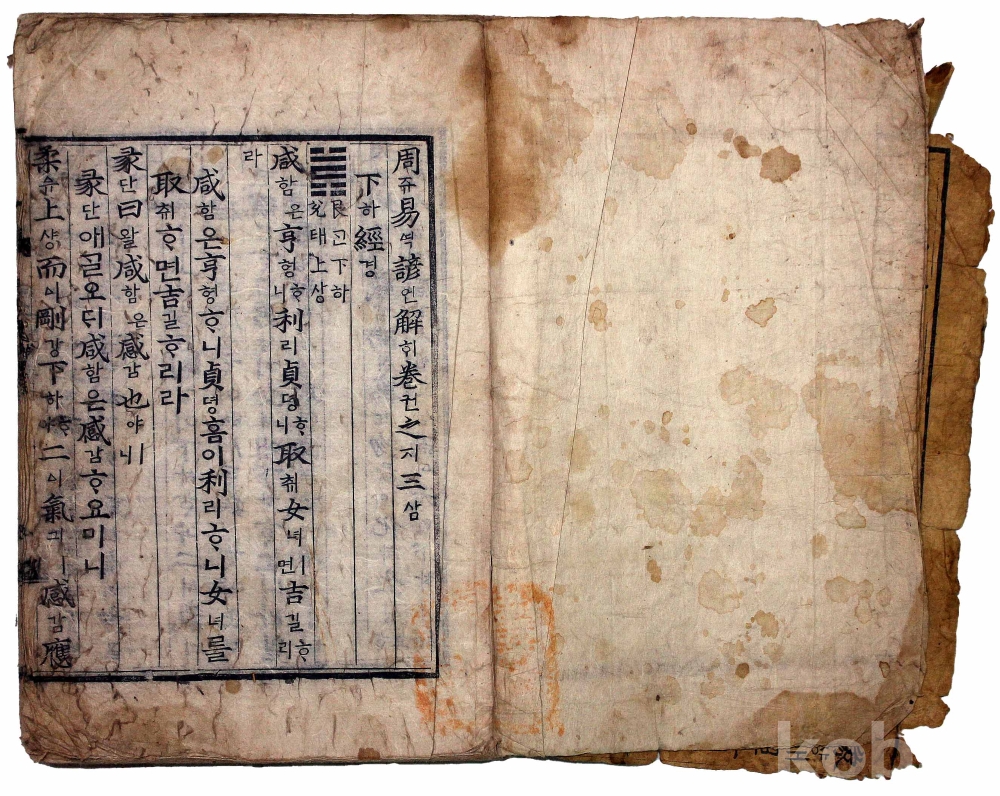 周쥬易역諺언解ᄒᆡ卷권之지三삼
下하經경
艮간下하
兌태上상
咸함은亨형ᄒᆞ니利리貞뎡ᄒᆞ니取취女녀ㅣ면吉길ᄒᆞ리
라
咸함은亨형ᄒᆞ니貞뎡홈이利리ᄒᆞ니女녀를
取취ᄒᆞ면吉길ᄒᆞ리라
彖단曰왈咸함은感감也야ㅣ니
彖단애ᄀᆞᆯ오ᄃᆡ咸함은感감ᄒᆞ요미니
柔슈上샹而이剛강下하ᄒᆞ야二이氣긔ㅣ感감應
kob